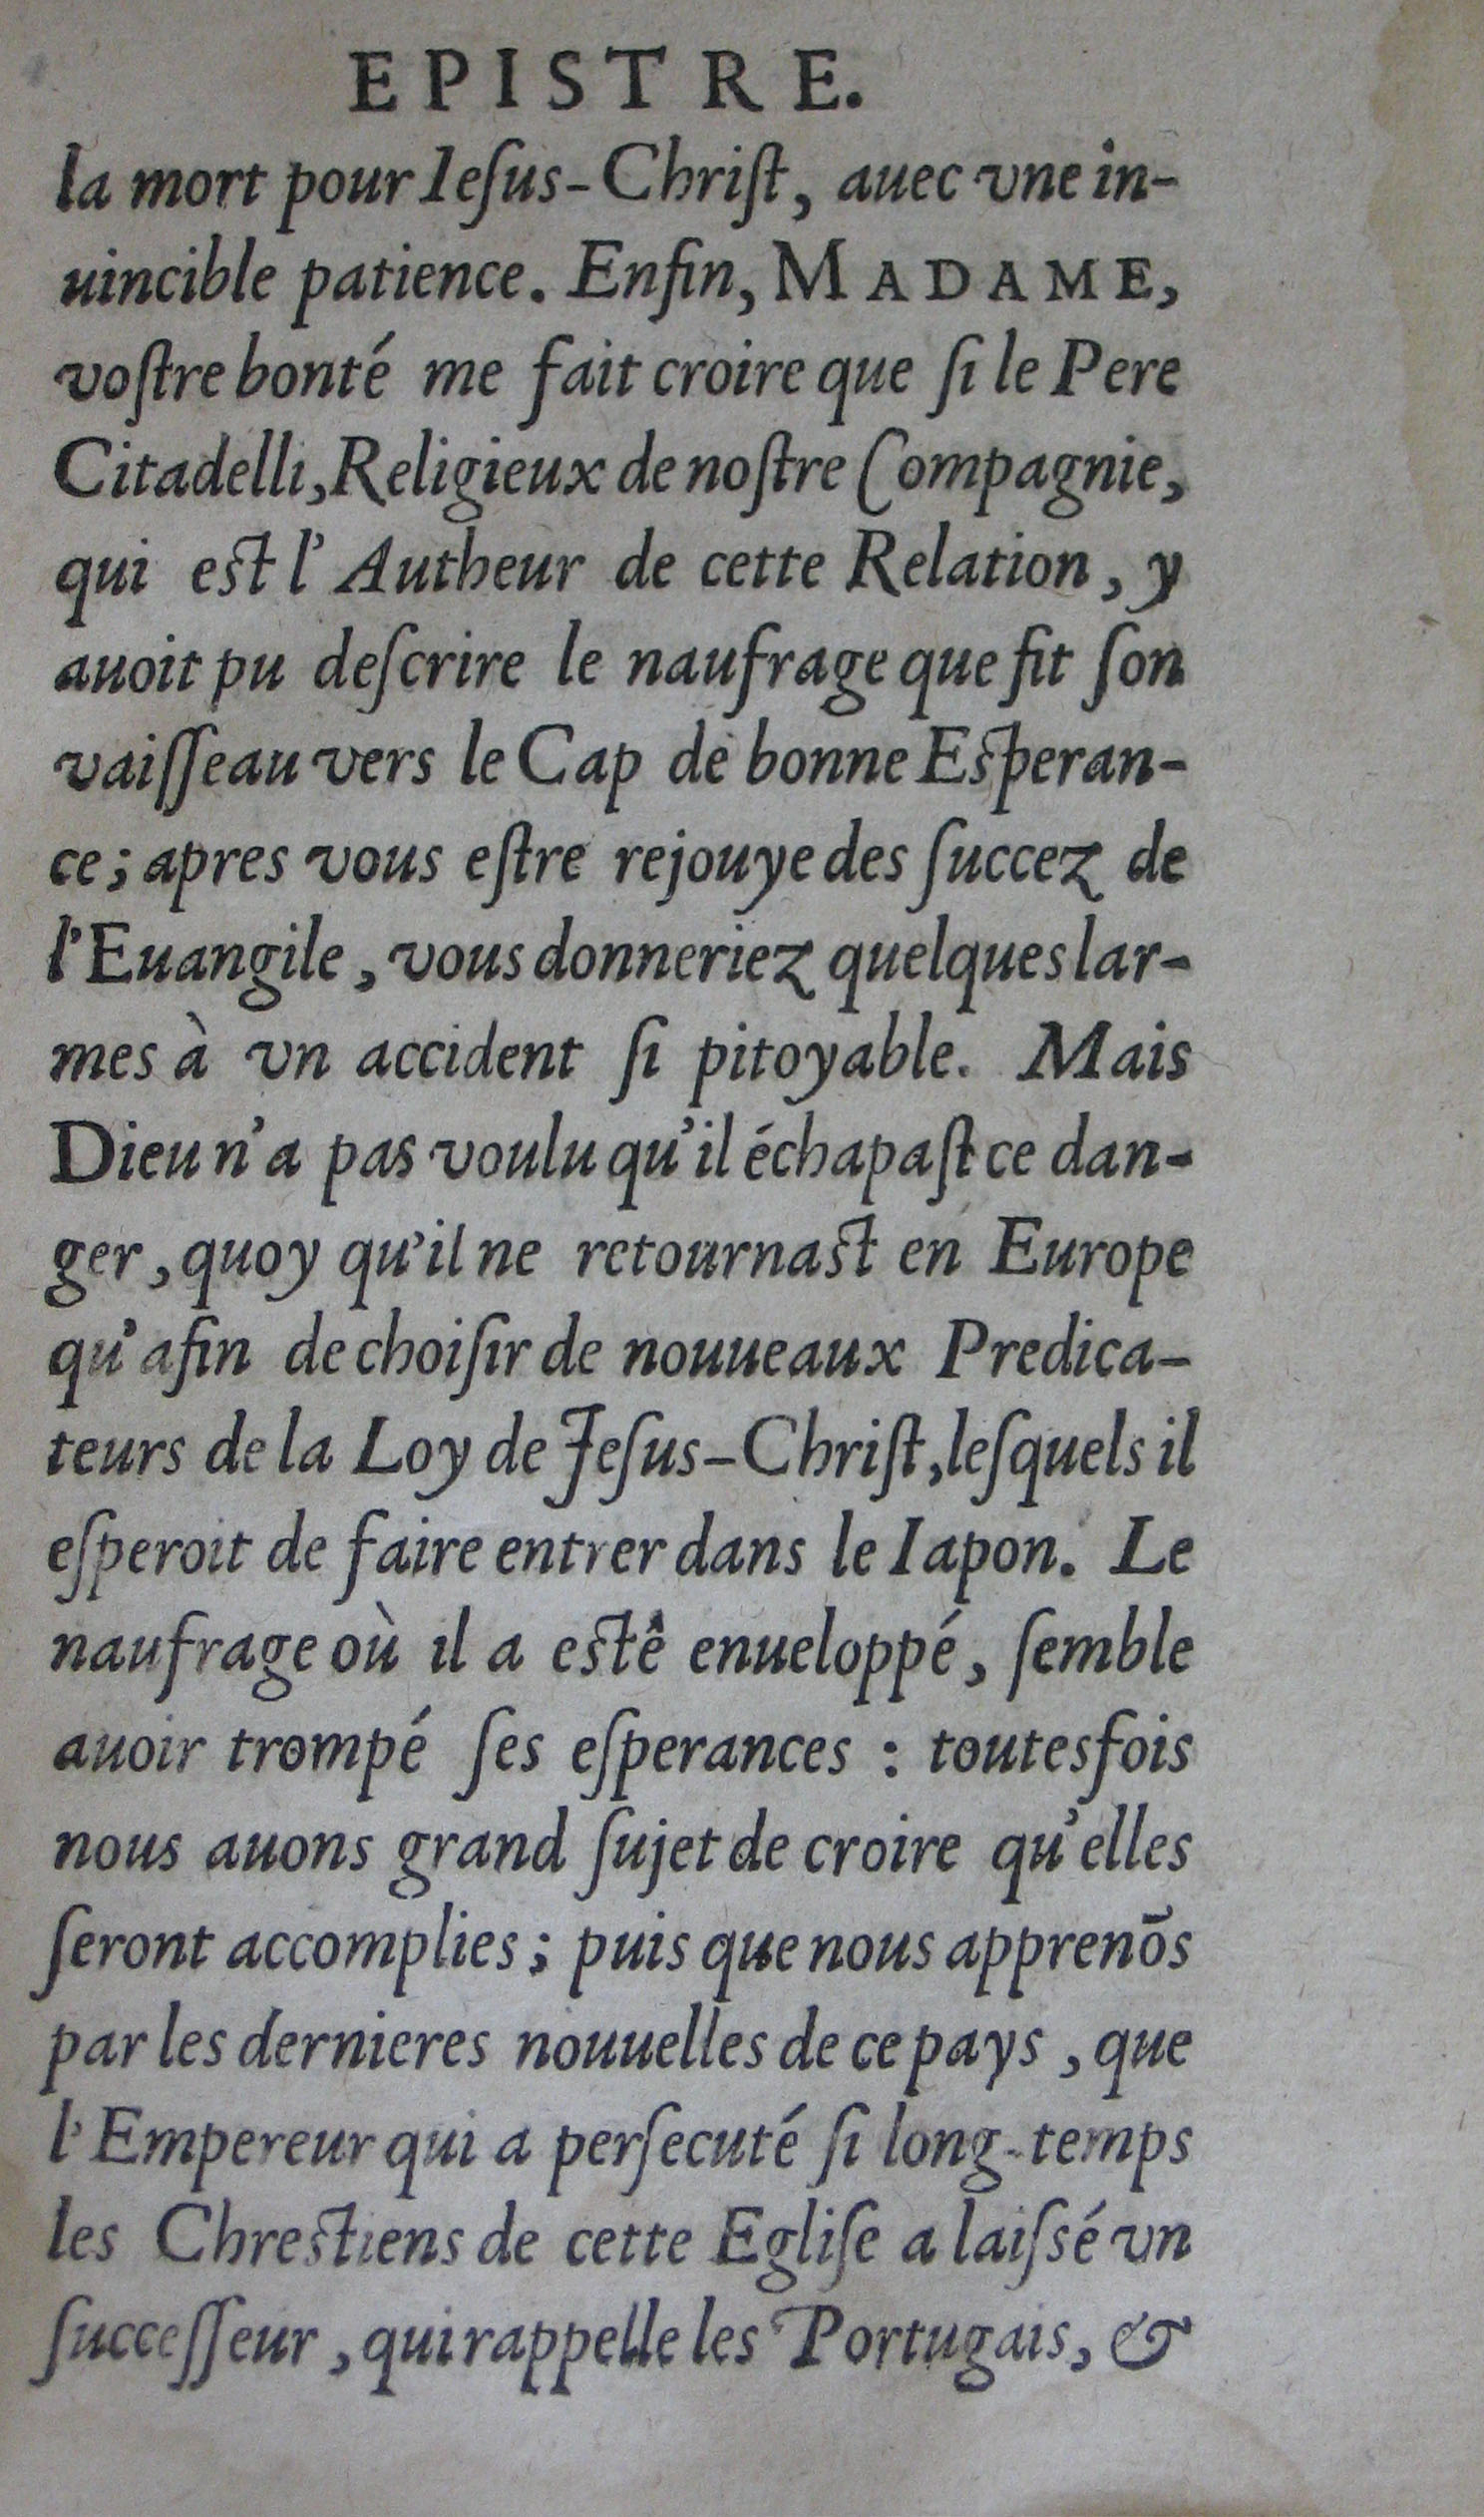 EPISTRE.
la mort pour Ieſus-Chriſt, auec vne in-
uincible patience. Enfin, MADAME,
voſtre bonté me fait croire que ſi le Pere
Citadelli, Religieux de noſtre Compagnie,
qui eſt l'Autheur de cette Relation, y
auoit pu deſcrire le naufrage que fit ſon
vaiſſeau vers le Cap de bonne Eſperan-
ce; apres vous eſtre rejouye des ſuccez de
l'Euangile, vous donneriez quelques lar-
mes à vn accident ſi pitoyable. Mais
Dieu n'a pas voulu qu'il échapaſt ce dan-
ger, quoy qu'il ne retournaſt en Europe
qu'afin de choiſir de nouueaux Predica-
teurs de la Loy de Jeſus-Chriſt, leſquels il
eſperoit de faire entrer dans le Iapon. Le
naufrage où il a eſtê enueloppé, ſemble
auoir trompé ſes eſperances : toutesfois
nous auons grand ſujet de croire qu'elles
ſeront accomplies; puis que nous apprenõs
par les dernieres nouuelles de ce pays, que
l'Empereur qui a perſecuté ſi long-temps
les Chreſtiens de cette Egliſe a laiſsé vn
ſucceſſeur, qui rappelle les Portugais, &